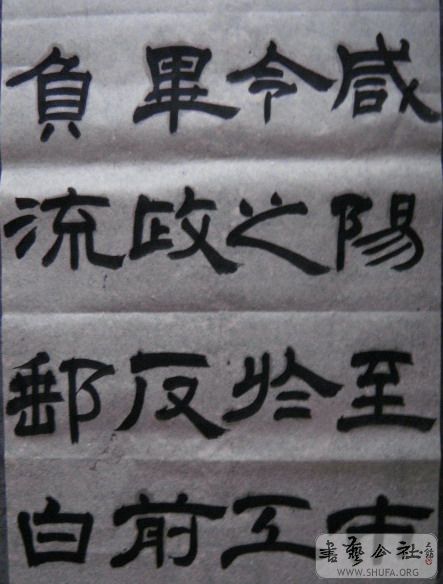 咸陽至
令之於工
畢政反前
負流郵白
書藝公社
WWW.SHUFA.ORG